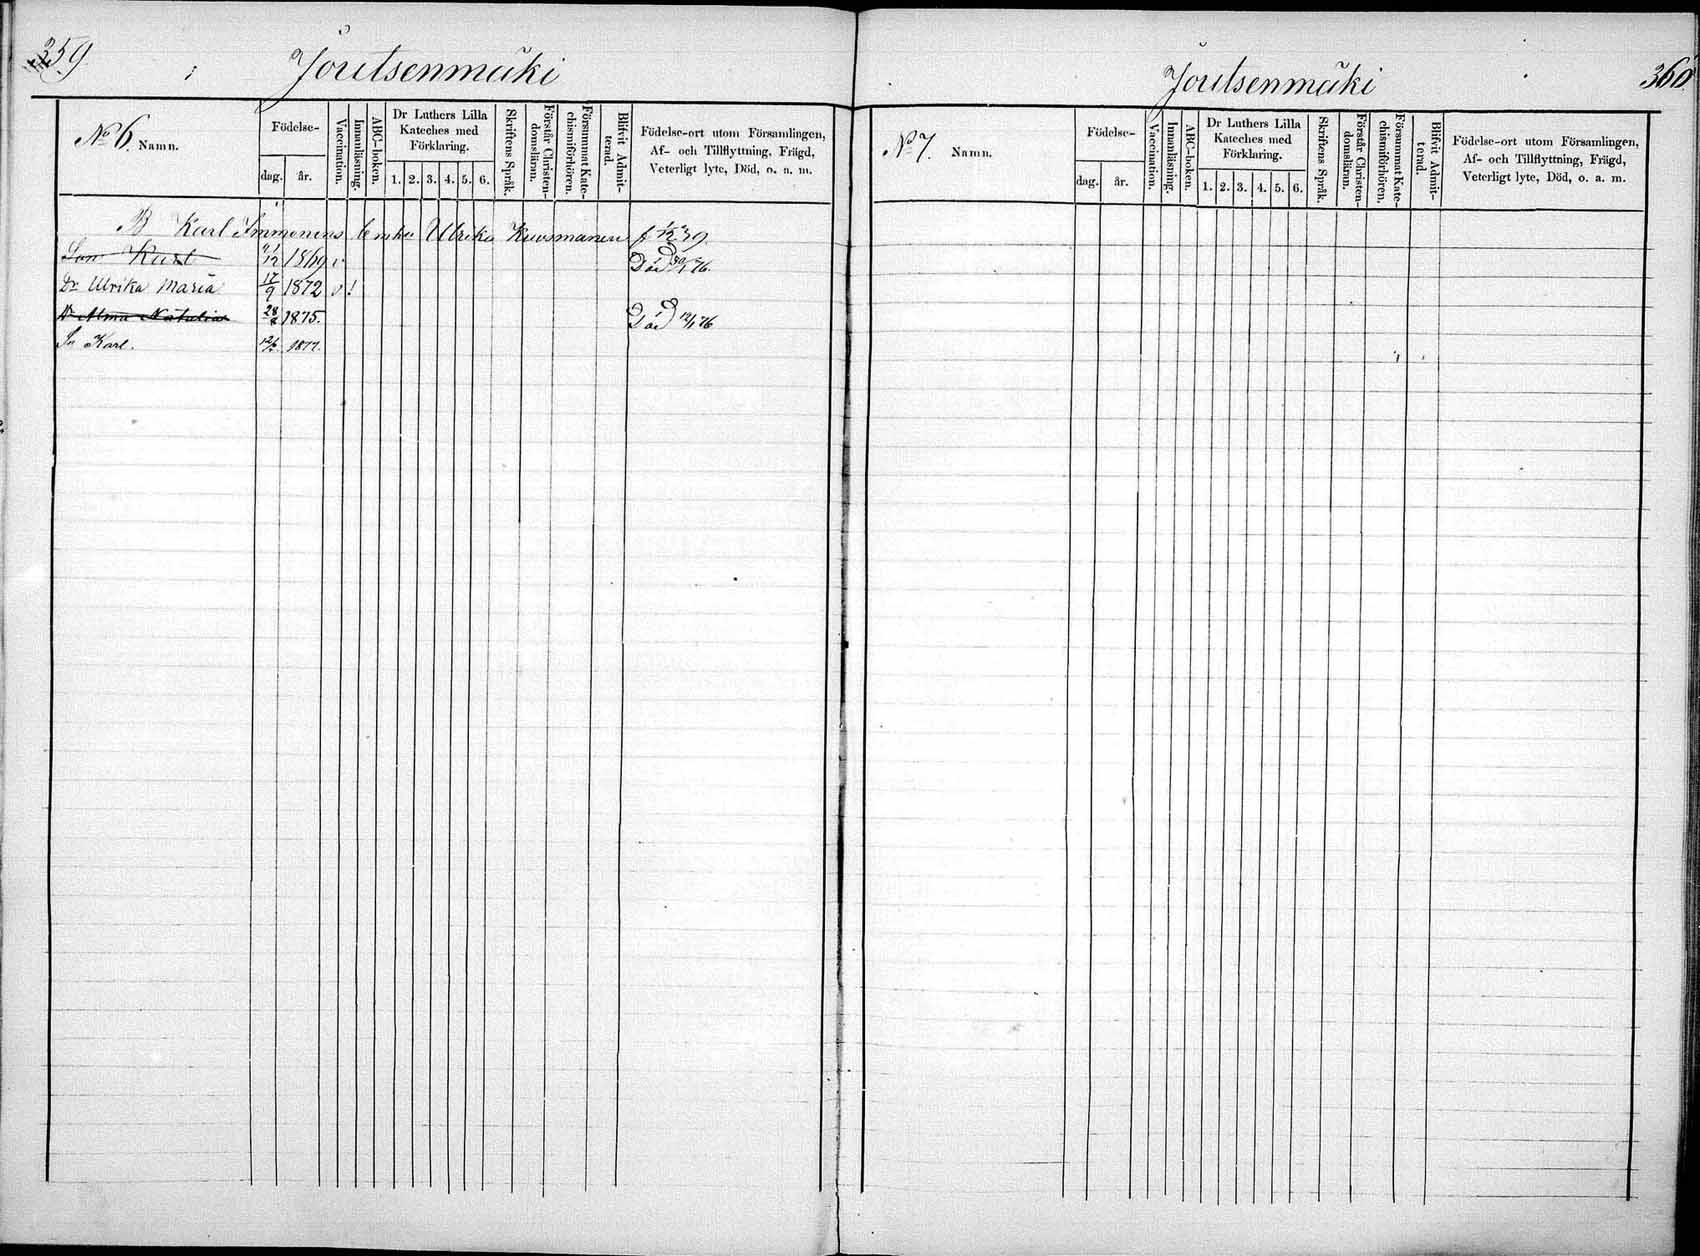 359
Joutsenmäki
No 6. Namn.
Födelse-
dag. år.
Vaccination.
Innanläsning.
ABC-boken.
Dr Luthers Lilla
Kateches med
Förklaring.
1. 2. 3. 4. 5. 6.
Skriftens Språk.
Förstår Christen-
domsläran.
Försummat Kate-
chismiförhören.
Blifvit Admit-
terad.
Födelse-ort utom Församlingen,
Af- och Tillflyttning, Frägd,
Veterligt lyte, Död, o. a. m.
B Karl Immonens Enka Ulrika Kuosmanen f 39
Son Karl 1869 v Död 76.
Dr Ulrika Maria 17/9 1872 v !
Dr Alma Natalia 28/8 1875. Död 12/1 76
Sn Karl. 1877.
360
Joutsenmäki
No 7. Namn.
Födelse-
dag. år.
Vaccination.
Innanläsning.
ABC-boken.
Dr Luthers Lilla
Kateches med
Förklaring.
1. 2. 3. 4. 5. 6.
Skriftens Språk.
Förstår Christen-
domsläran.
Försummat Kate-
chismiförhören.
Blifvit Admit-
terad.
Födelse-ort utom Församlingen,
Af- och Tillflyttning, Frägd,
Veterligt lyte, Död, o. a. m.